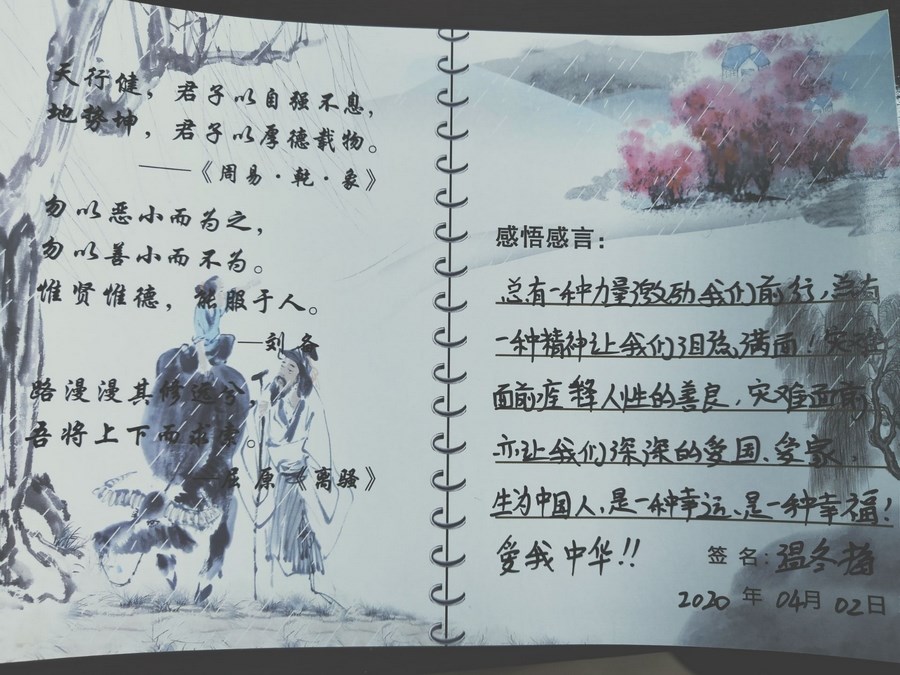 天行健，君子以自强不息，
地势坤，君子以厚德载物。
——《周易·乾·象》
勿以恶小而为之，
勿以善小而不为。
惟贤惟德，能服于人。
——刘备
路漫漫其修远兮，
吾将上下而求索。
——屈原《离骚》
感悟感言：
总有一种力量激励我们前行，总有
一种精神让我们泪流满面！灾难
面前 诠释人性的善良，灾难面前
亦让我们深深的爱国、爱家，
生为中国人，是一种幸运、是一种幸福！
爱我中华！！
签名：温冬梅
2020年04月02日